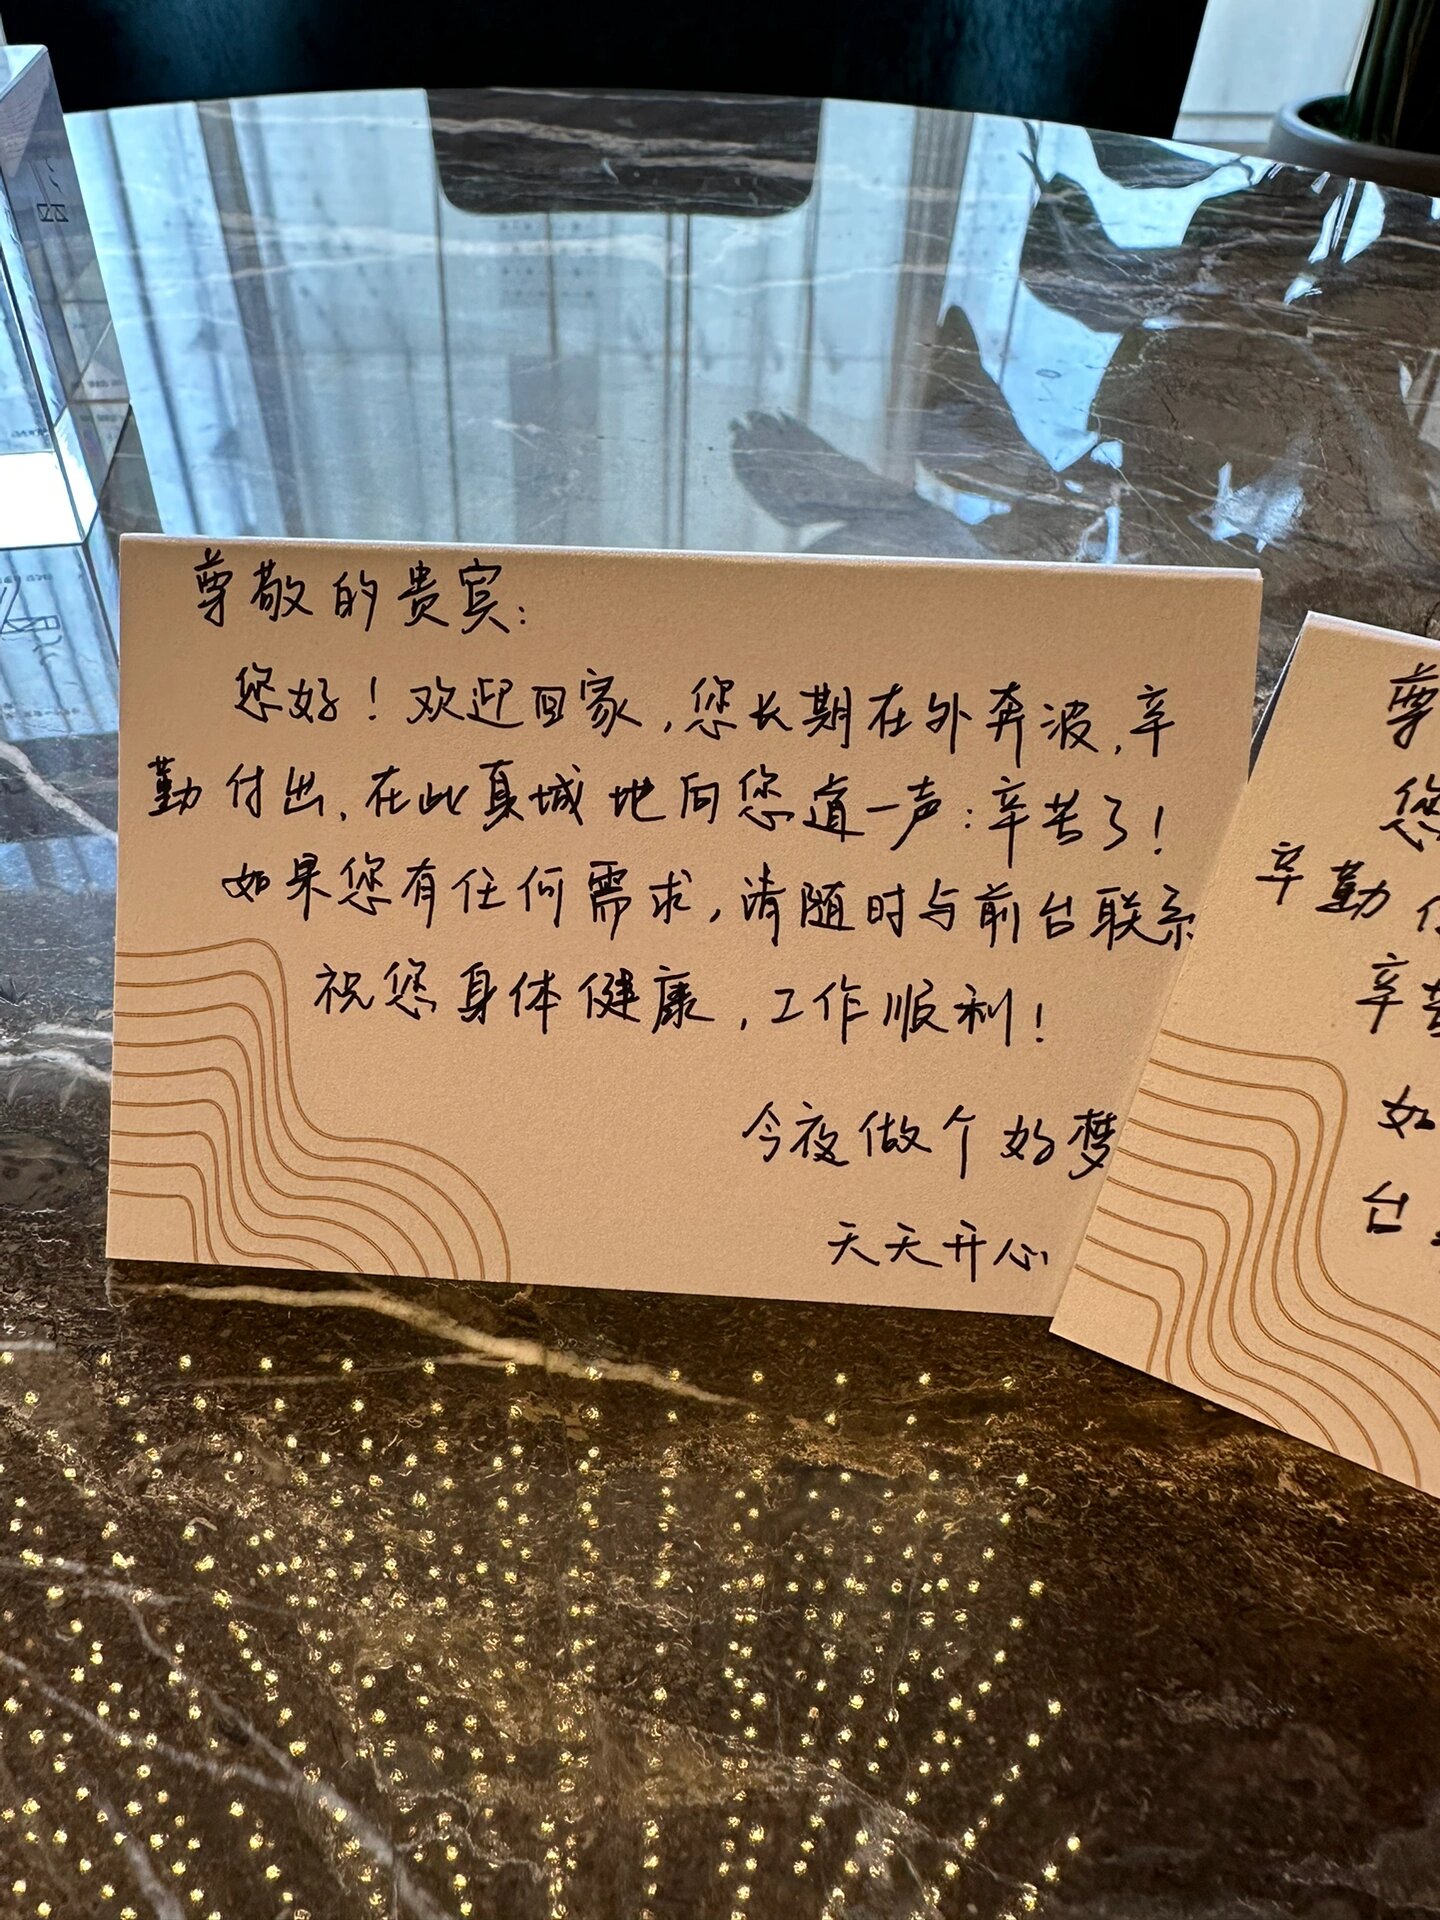 尊敬的贵宾:
您好!欢迎回家,您长期在外奔波,辛
勤付出,在此真城地向您道一声:辛苦了!
如果您有任何需求,请随时与前台联系
祝您身体健康,工作顺利!
今夜做个好梦
天天开心
尊
您
辛勤付
辛苦
如
台